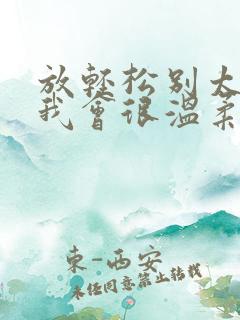 放轻松别太
我会很温柔
東-西安
未经同意禁止转载